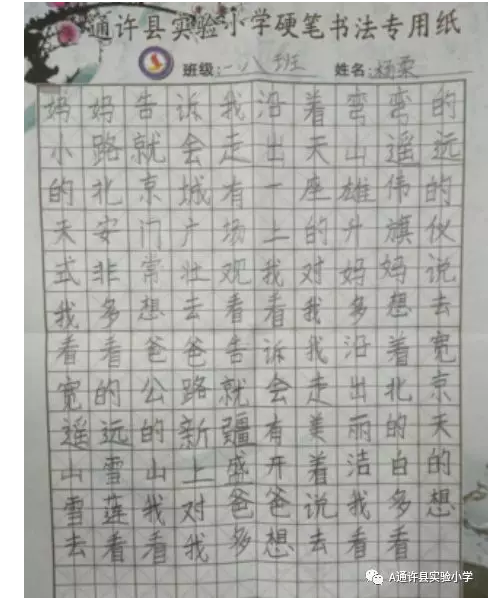 通许县实验小学硬笔书法专用纸
班级:一八班 姓名:杨栗
妈妈告诉我沿着弯弯的
小路就会走出天山遥远
的北京城有一座雄伟的
天安门广场上的升旗仪
式非常壮观我对妈妈说
我多想去看看我多想去
看看爸爸告诉我沿着宽
宽的公路就会走出北京
遥远的新疆有美丽的天
山雪山上盛开着洁白的
雪莲我对爸爸说我多想
去看看我多想去看看
A通许县实验小学